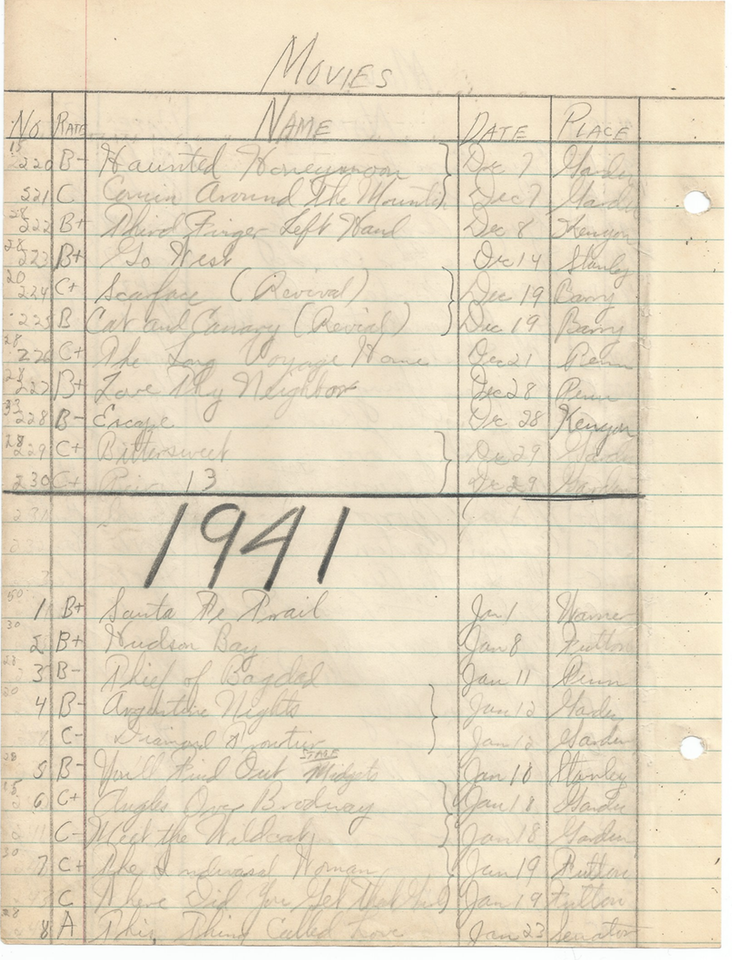 MOVIES
No. RATE NAME DATE PLACE
15
220 B- Haunted Honeymoon } Dec 7 Garden
221 C Comin Around The Mountain } Dec 7 Garden
28
222 B+ Third Finger Left Hand Dec 8 Kenyon
28
223 B+ Go West Dec 14 Stanley
20
224 C+ Scarface (Revival) } Dec 19 Barry
225 B Cat and Canary (Revial) } Dec 19 Barry
28
226 C+ The Long Voyage Home Dec 21 Penn
28
227 B+ Love Thy Neighbor Dec 28 Penn
33
228 B- Escape Dec 28 Kenyon
28
229 C+ Bittersweet } Dec 29 Garden
230 C+ Pier 13 } Dec 29 Garden
1941
50
1 B+ Santa Fe Trail Jan 1 Warner
30
2 B+ Hudson Bay Jan 8 Fulton
3 B- Thief of Bagdad Jan 11 Penn
20
4 B- Argentine Nights } Jan 12 Garden
C- Diamond Frontier } Jan 12 Garden
STAGE
5 B- You'll Find Out Midgets Jan 18 Stanley
15
6 C+ Angles Over Brodway } Jan 18 Garden
C- Meet the Wildcats } Jan 18 Garden
30
7 C+ The Woman } Jan 19 Fulton
C Where Did You Get That Girl } Jan 19 Fulton
28
8 A This Thing Called Love Jan 23 Senator